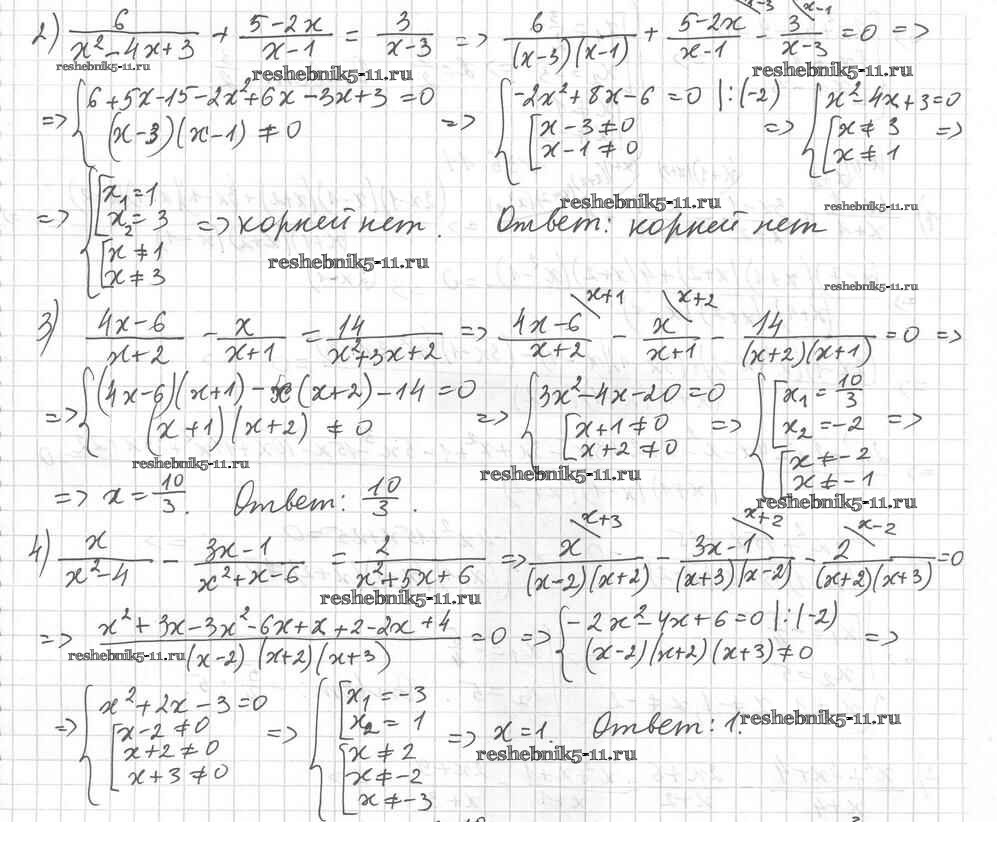 2) 6/(x²-4x+3) + (5-2x)/(x-1) = 3/(x-3) => 6/((x-3)(x-1)) + (5-2x)/(x-1) \x-3 - 3/(x-3) \x-1 = 0 =>
reshebnik5-11.ru reshebnik5-11.ru reshebnik5-11.ru
=> { 6+5x-15-2x²+6x-3x+3=0 ; (x-3)(x-1)≠0 => { -2x²+8x-6=0 |:(-2) ; [ x-3≠0 ; x-1≠0 => { x²-4x+3=0 ; [ x≠3 ; x≠1 =>
=> { [ x₁=1 ; x₂=3 ; [ x≠1 ; x≠3 => корней нет. Ответ: корней нет
reshebnik5-11.ru reshebnik5-11.ru
reshebnik5-11.ru reshebnik5-11.ru
3) (4x-6)/(x+2) - x/(x+1) = 14/(x²+3x+2) => (4x-6)/(x+2) \x+1 - x/(x+1) \x+2 - 14/((x+2)(x+1)) = 0 =>
=> { (4x-6)(x+1)-x(x+2)-14=0 ; (x+1)(x+2)≠0 => { 3x²-4x-20=0 ; [ x+1≠0 ; x+2≠0 => { [ x₁=10/3 ; x₂=-2 ; [ x≠-2 ; x≠-1 =>
reshebnik5-11.ru reshebnik5-11.ru reshebnik5-11.ru
=> x=10/3. Ответ: 10/3.
4) x/(x²-4) - (3x-1)/(x²+x-6) = 2/(x²+5x+6) => x/((x-2)(x+2)) \x+3 - (3x-1)/((x+3)(x-2)) \x+2 - 2/((x+2)(x+3)) \x-2 = 0
reshebnik5-11.ru
=> (x²+3x-3x²-6x+x+2-2x+4)/((x-2)(x+2)(x+3)) = 0 => { -2x²-4x+6=0 |:(-2) ; (x-2)(x+2)(x+3)≠0 =>
reshebnik5-11.ru
=> { x²+2x-3=0 ; [ x-2≠0 ; x+2≠0 ; x+3≠0 => { [ x₁=-3 ; x₂=1 ; [ x≠2 ; x≠-2 ; x≠-3 => x=1. Ответ: 1.
reshebnik5-11.ru reshebnik5-11.ru